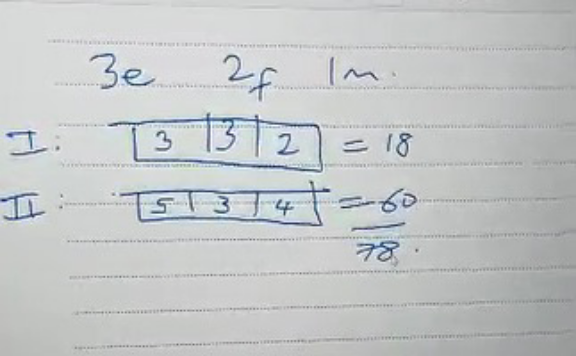 3e 2f 1m.
I: 3 3 2 = 18
II: 5 3 4 = 60
78.